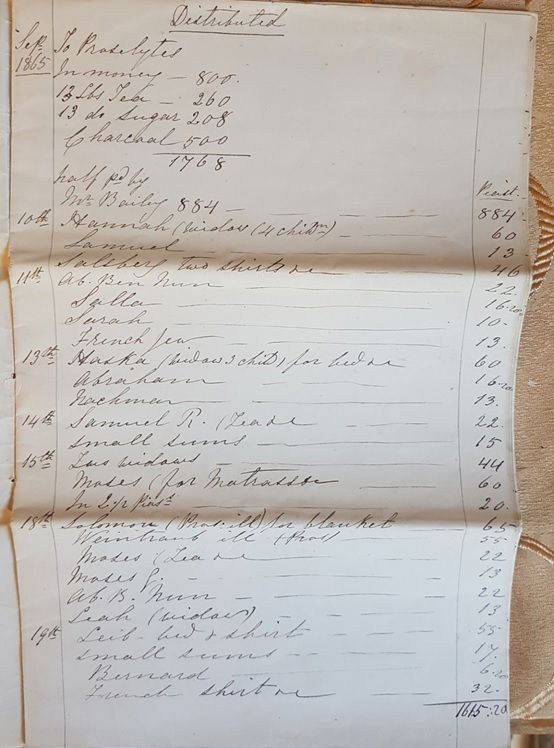 Distributed
Sep. 1865 To Proselytes
In money — 800.
13 lbs Tea — 260
13 do Sugar 208
Charcoal 500
1768
half pd by Piast.
Mr Bailey 884 — 884
10th Hannah (widow (4 childn) — 60
Samuel — 13
Salzberg two shirts &c — 46
11th Ab. Ben Nun — 22
Salla — 16.20
Sarah — 10.
French Jew — 13.
13th Haska (widow 3 child) for bed &c 60
Abraham — 16.20
Nachman — 13.
14th Samuel R. (Tea &c — 22.
small sums — 15
15th Two widows — 44
Moses (for Matrasse — 60
In 2½ Piast — 20.
18th Solomon (Pros. ill) for blanket 65
Weintraub ill (Pros) 55
Moses (Tea &c — 22
Moses G. — 13
Ab. B. Nun — 22
Leah (widow) — 13
19th Leib bed & shirt — 55
small sums — 17
Bernard — 6.20
French shirt &c — 32.
1615:20